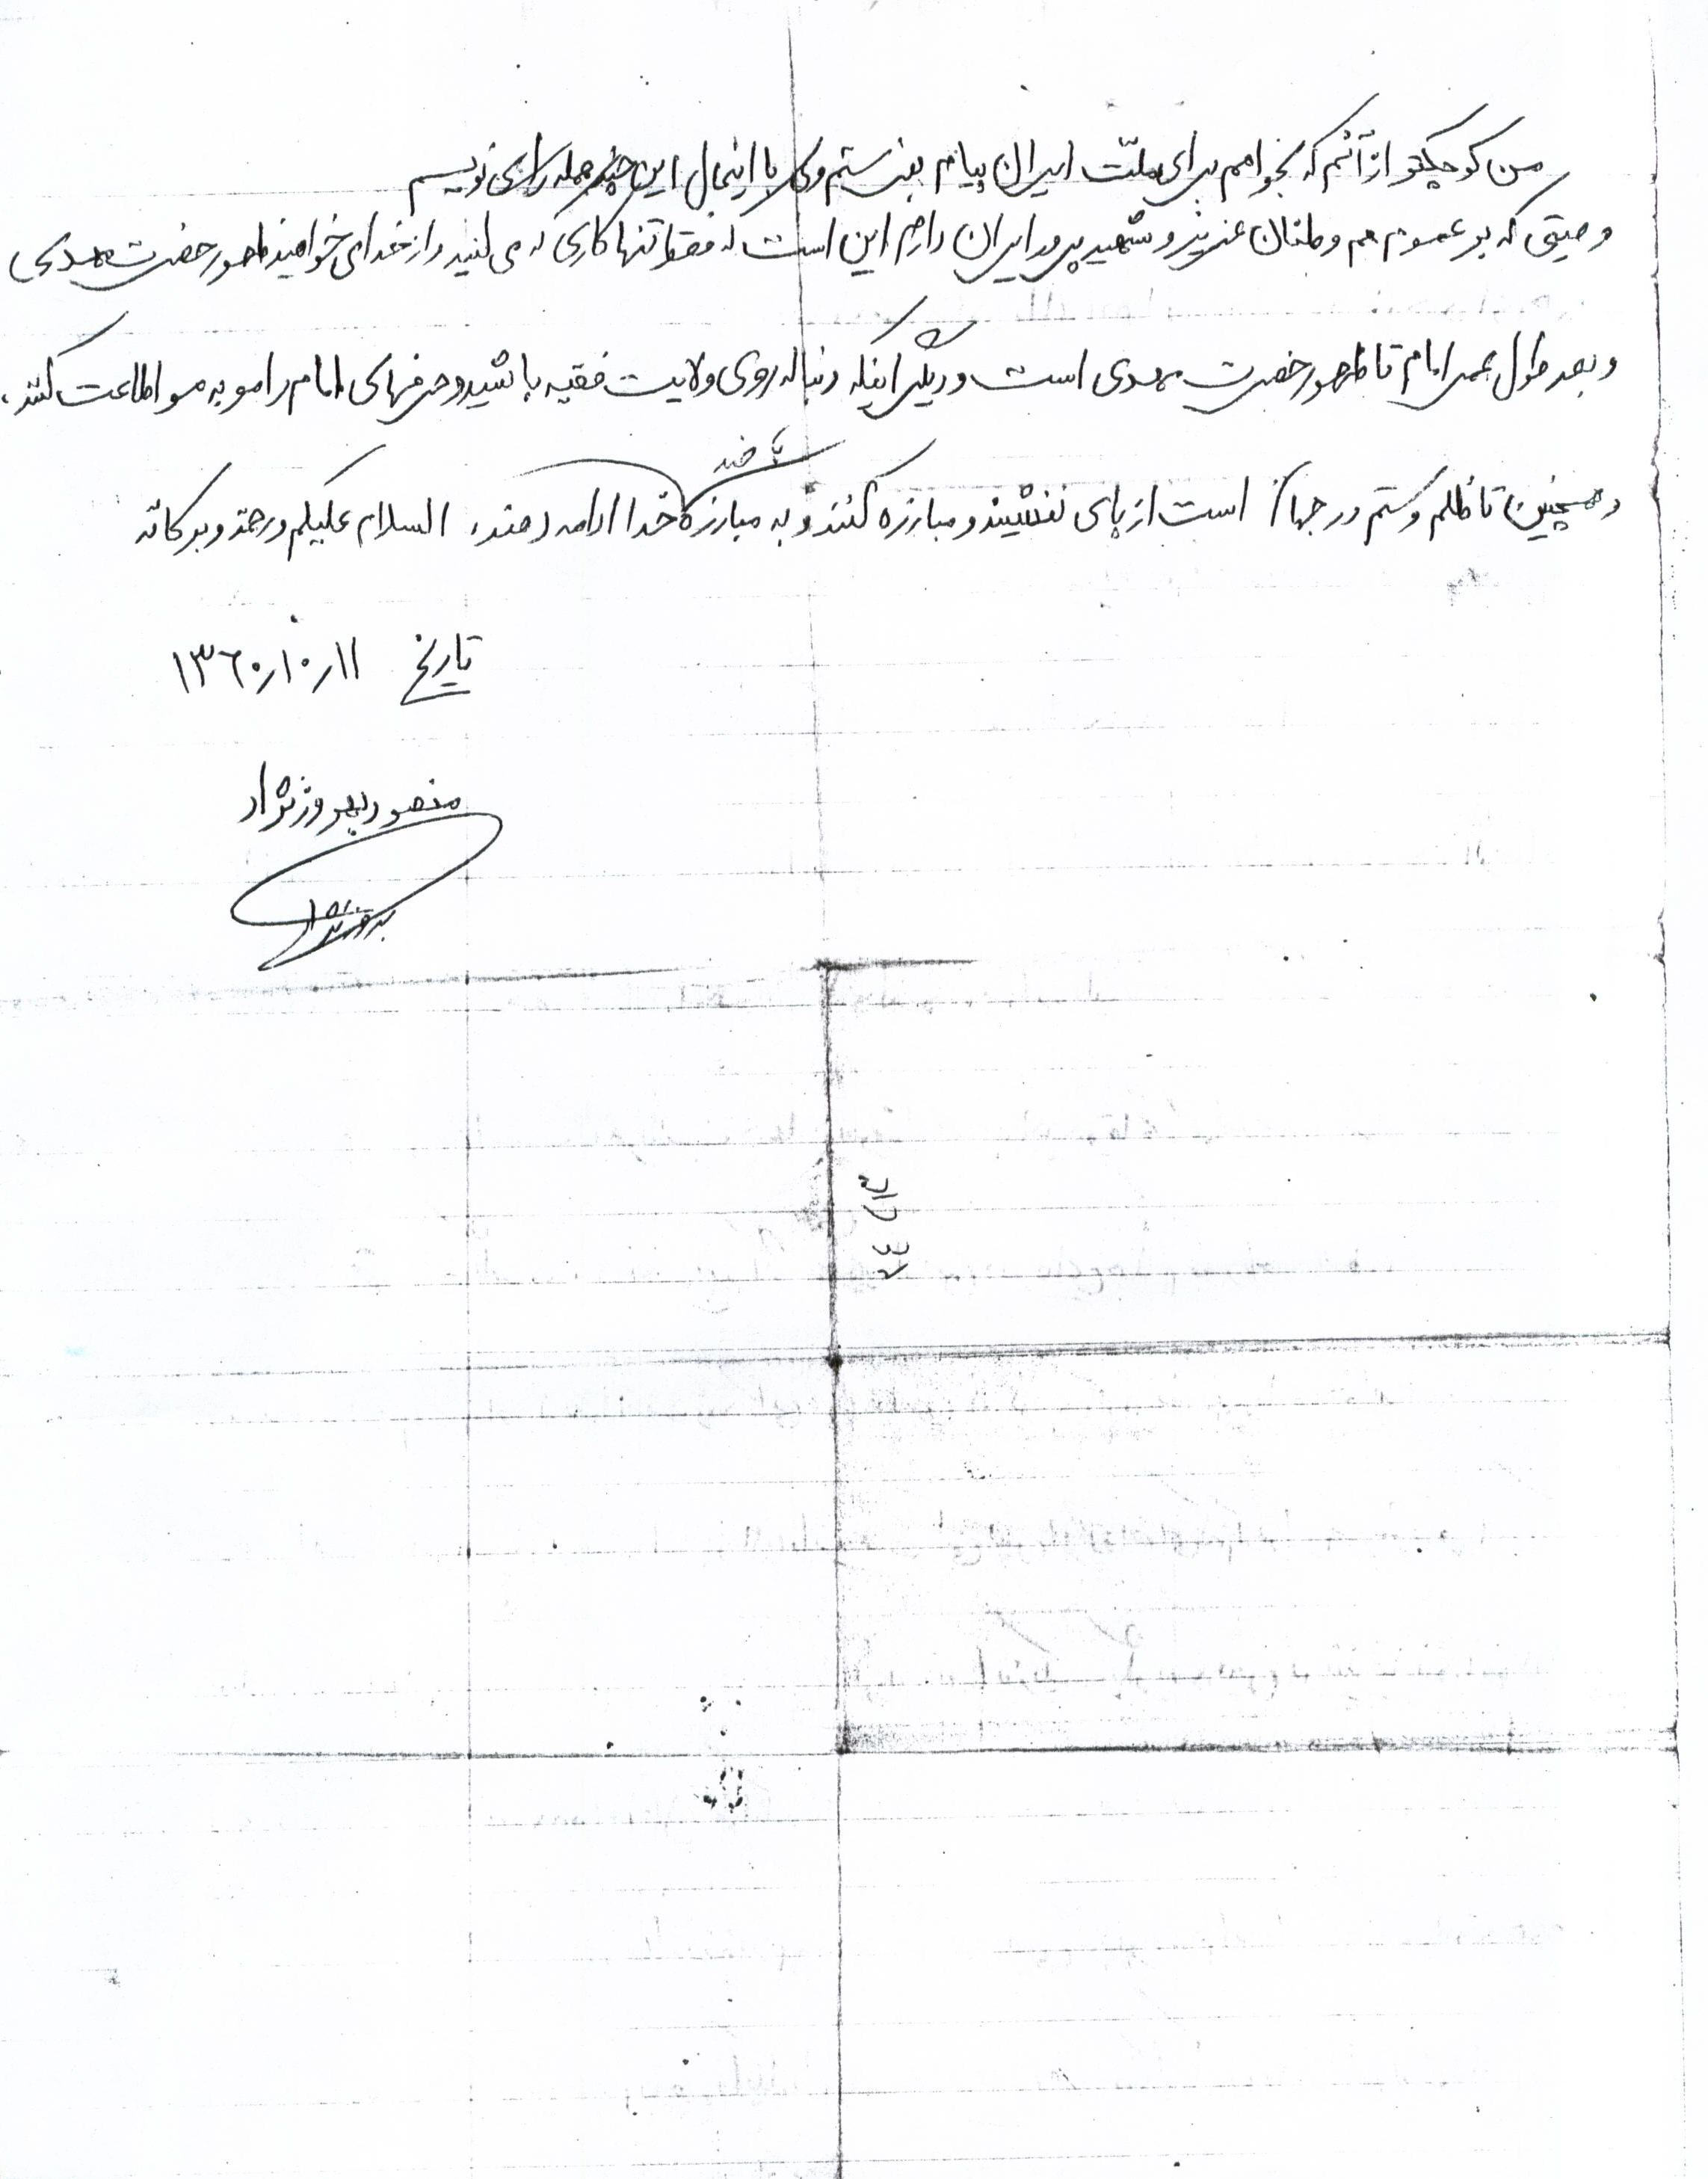 من کوچکتر از آنم که بخواهم برای ملّت ایران پیام بفرستم ولی با اینحال این چند جمله را می نویسم
وصیتی که بر عموم هم وطنان عزیز و شهید پرور ایران دارم این است که فقط تنها کاری که می کنید و از خدا می خواهید ظهور حضرت مهدی
و بعد طول عمر امام تا ظهور حضرت مهدی است و دیگر اینکه دنباله روی ولایت فقیه باشید و حرفهای امام را مو به مو اطاعت کنند.
و همچنین تا ظلم و ستم در جهان است از پای ننشینند و مبارزه کنند و به مبارزه با ضد خدا ادامه دهند. السلام علیکم و رحمة و برکاته
تاریخ ۱۳۶۰٫۱۰٫۱۱
منصور بهروزنژاد
بهروزنژاد